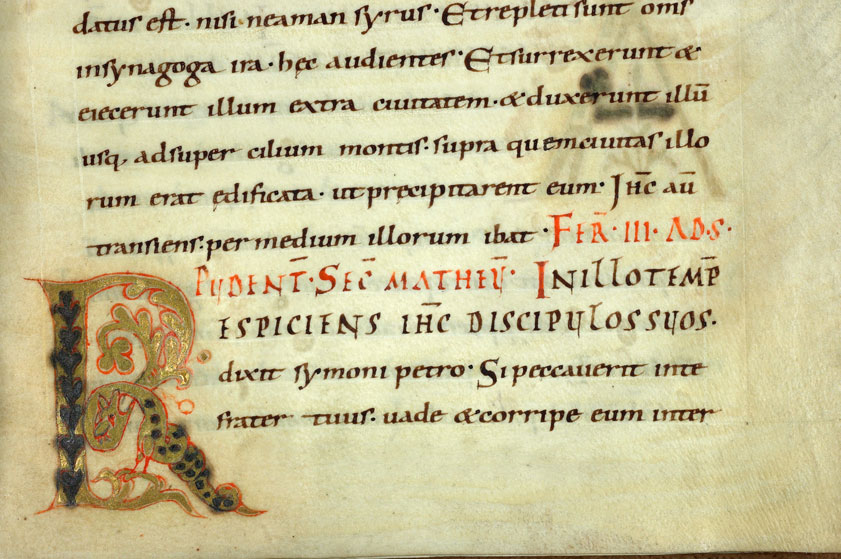 datus est. nisi neaman syrus. Et repleti sunt om̄s
insynagoga ira. hęc audientes. Et surrexerunt &
eiecerunt illum extra ciuitatem. & duxerunt illū
usq; adsuper cilium montis. supra quemciuitas illo
rum erat ędificata. ut pręcipitarent eum. Ih̄c aū
transiens. per medium illorum ibat. FER̄. III. AD. S.
PUDENT̄. SEC̄ MATHEŪ. INILLOTEMP̄
RESPICIENS IH̄C DISCIPULOSSUOS.
dixit symoni petro. Si peccauerit inte
frater tuus. uade & corripe eum inter